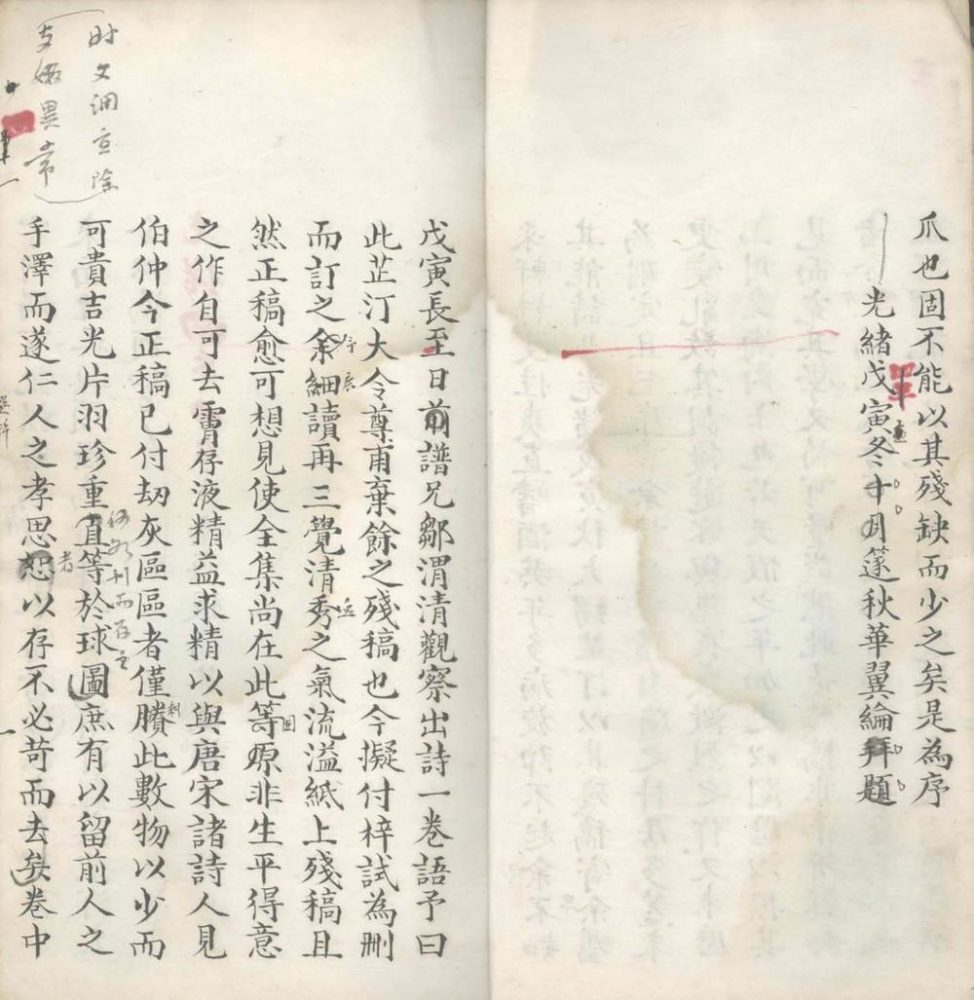 爪也固不能以其殘缺而少之矣是為序
光緒戊寅冬十月蓬秋華翼綸拜題
戊寅長至日前譜兄鄒渭清觀察出詩一卷語予曰
此芷汀大令尊甫棄餘之殘稿也今擬付梓試為刪
而訂之余細讀再三覺清秀之氣流溢紙上殘稿且
然正稿愈可想見使全集尚在此等原非生平得意
之作自可去膚存液精益求精以與唐宋諸詩人見
伯仲今正稿已付劫灰區區者僅賸此數物以少而
可貴吉光片羽珍重直等於球圖庶有以留前人之
手澤而遂仁人之孝思恕以存不必苛而去矣卷中
支娜異常